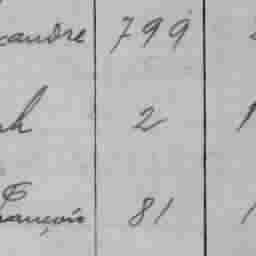 candre 799
h 2 1
François 81 1